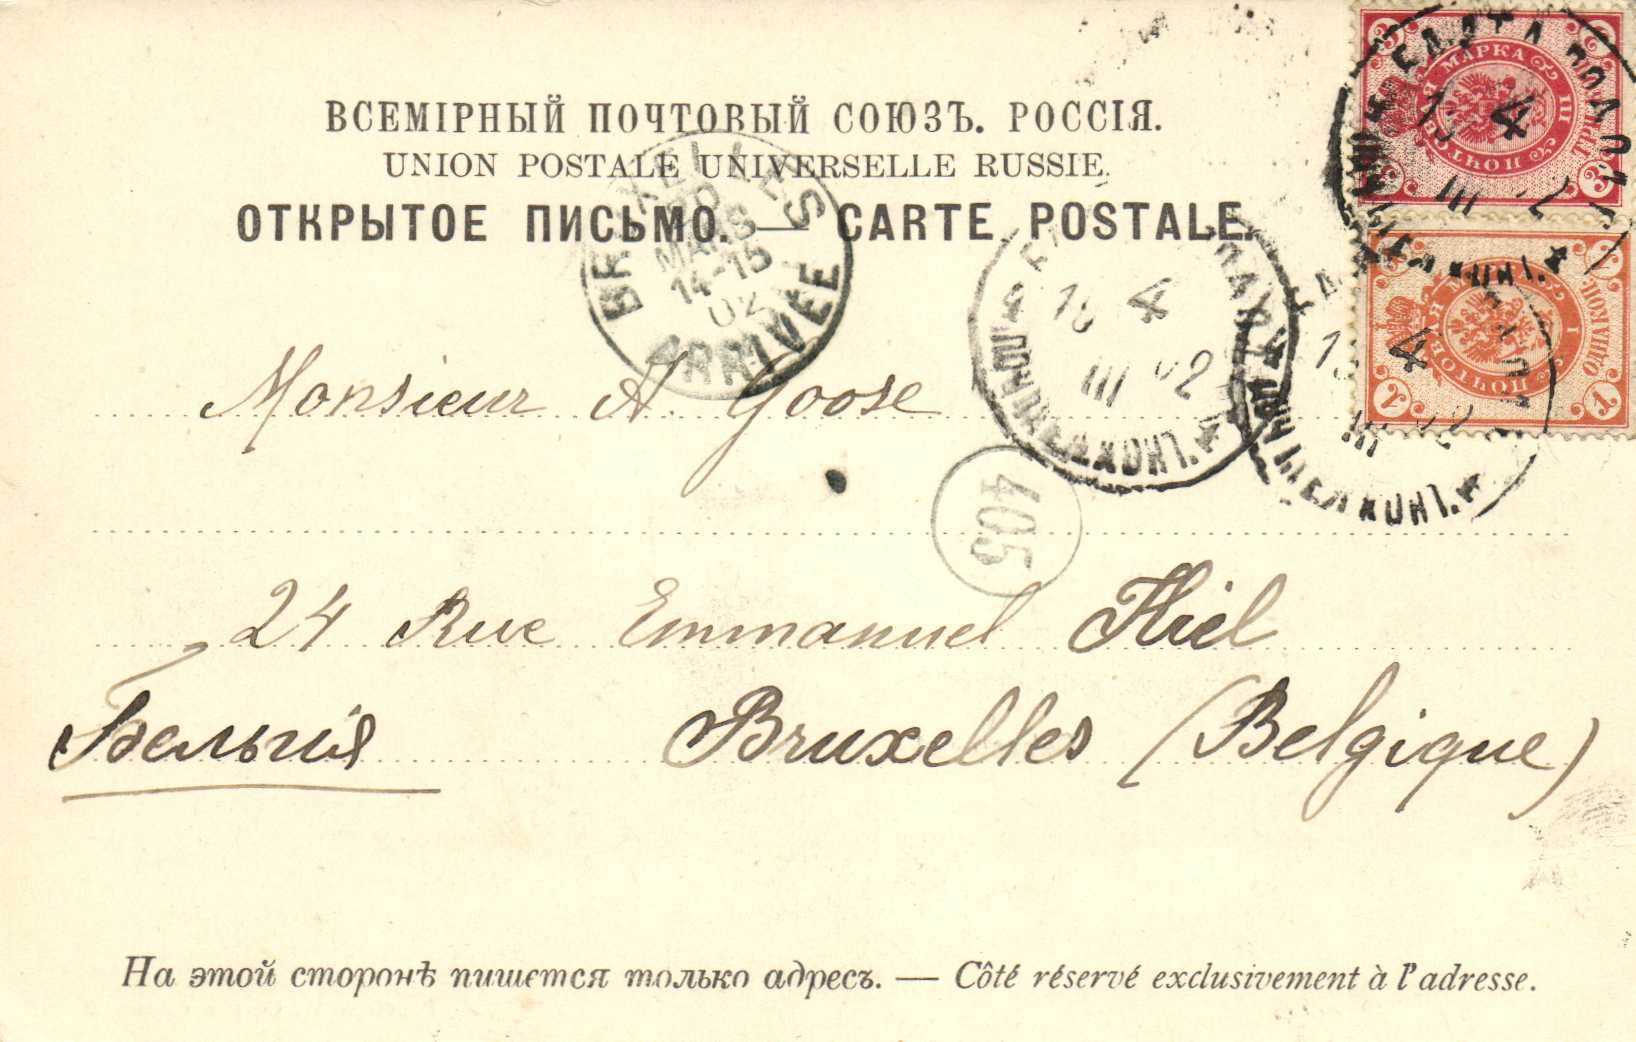 ВСЕМІРНЫЙ ПОЧТОВЫЙ СОЮЗЪ. РОССІЯ.
UNION POSTALE UNIVERSELLE RUSSIE.
ОТКРЫТОЕ ПИСЬМО. — CARTE POSTALE.
BRUXELLES
MARS
14-15
02
ARRIVÉE
4
III 02
3 МАРКА 3
ПОЧТОВ
3
4
1 1
ПОЧТОВ
1 1
4
Monsieur A Goose
405
24 Rue Emmanuel Hiel
Бельгія Bruxelles (Belgique)
На этой сторонѣ пишется только адресъ. — Côté réservé exclusivement à l'adresse.